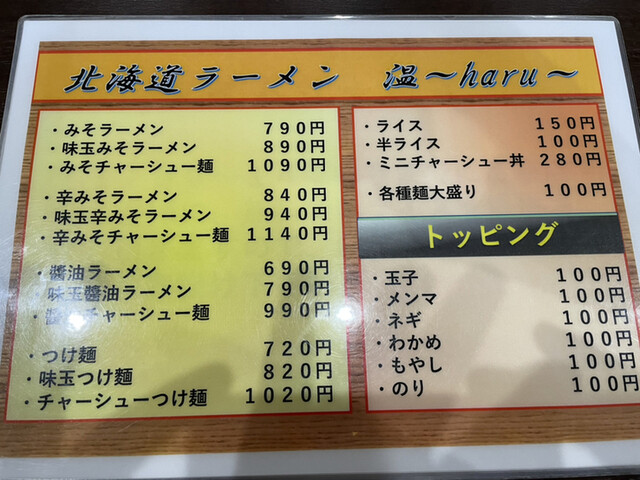 北海道ラーメン 温～haru～
・みそラーメン 790円
・味玉みそラーメン 890円
・みそチャーシュー麺 1090円
・辛みそラーメン 840円
・味玉辛みそラーメン 940円
・辛みそチャーシュー麺 1140円
・醬油ラーメン 690円
・味玉醬油ラーメン 790円
・醬油チャーシュー麺 990円
・つけ麺 720円
・味玉つけ麺 820円
・チャーシューつけ麺 1020円
・ライス 150円
・半ライス 100円
・ミニチャーシュー丼 280円
・各種麺大盛り 100円
トッピング
・玉子 100円
・メンマ 100円
・ネギ 100円
・わかめ 100円
・もやし 100円
・のり 100円